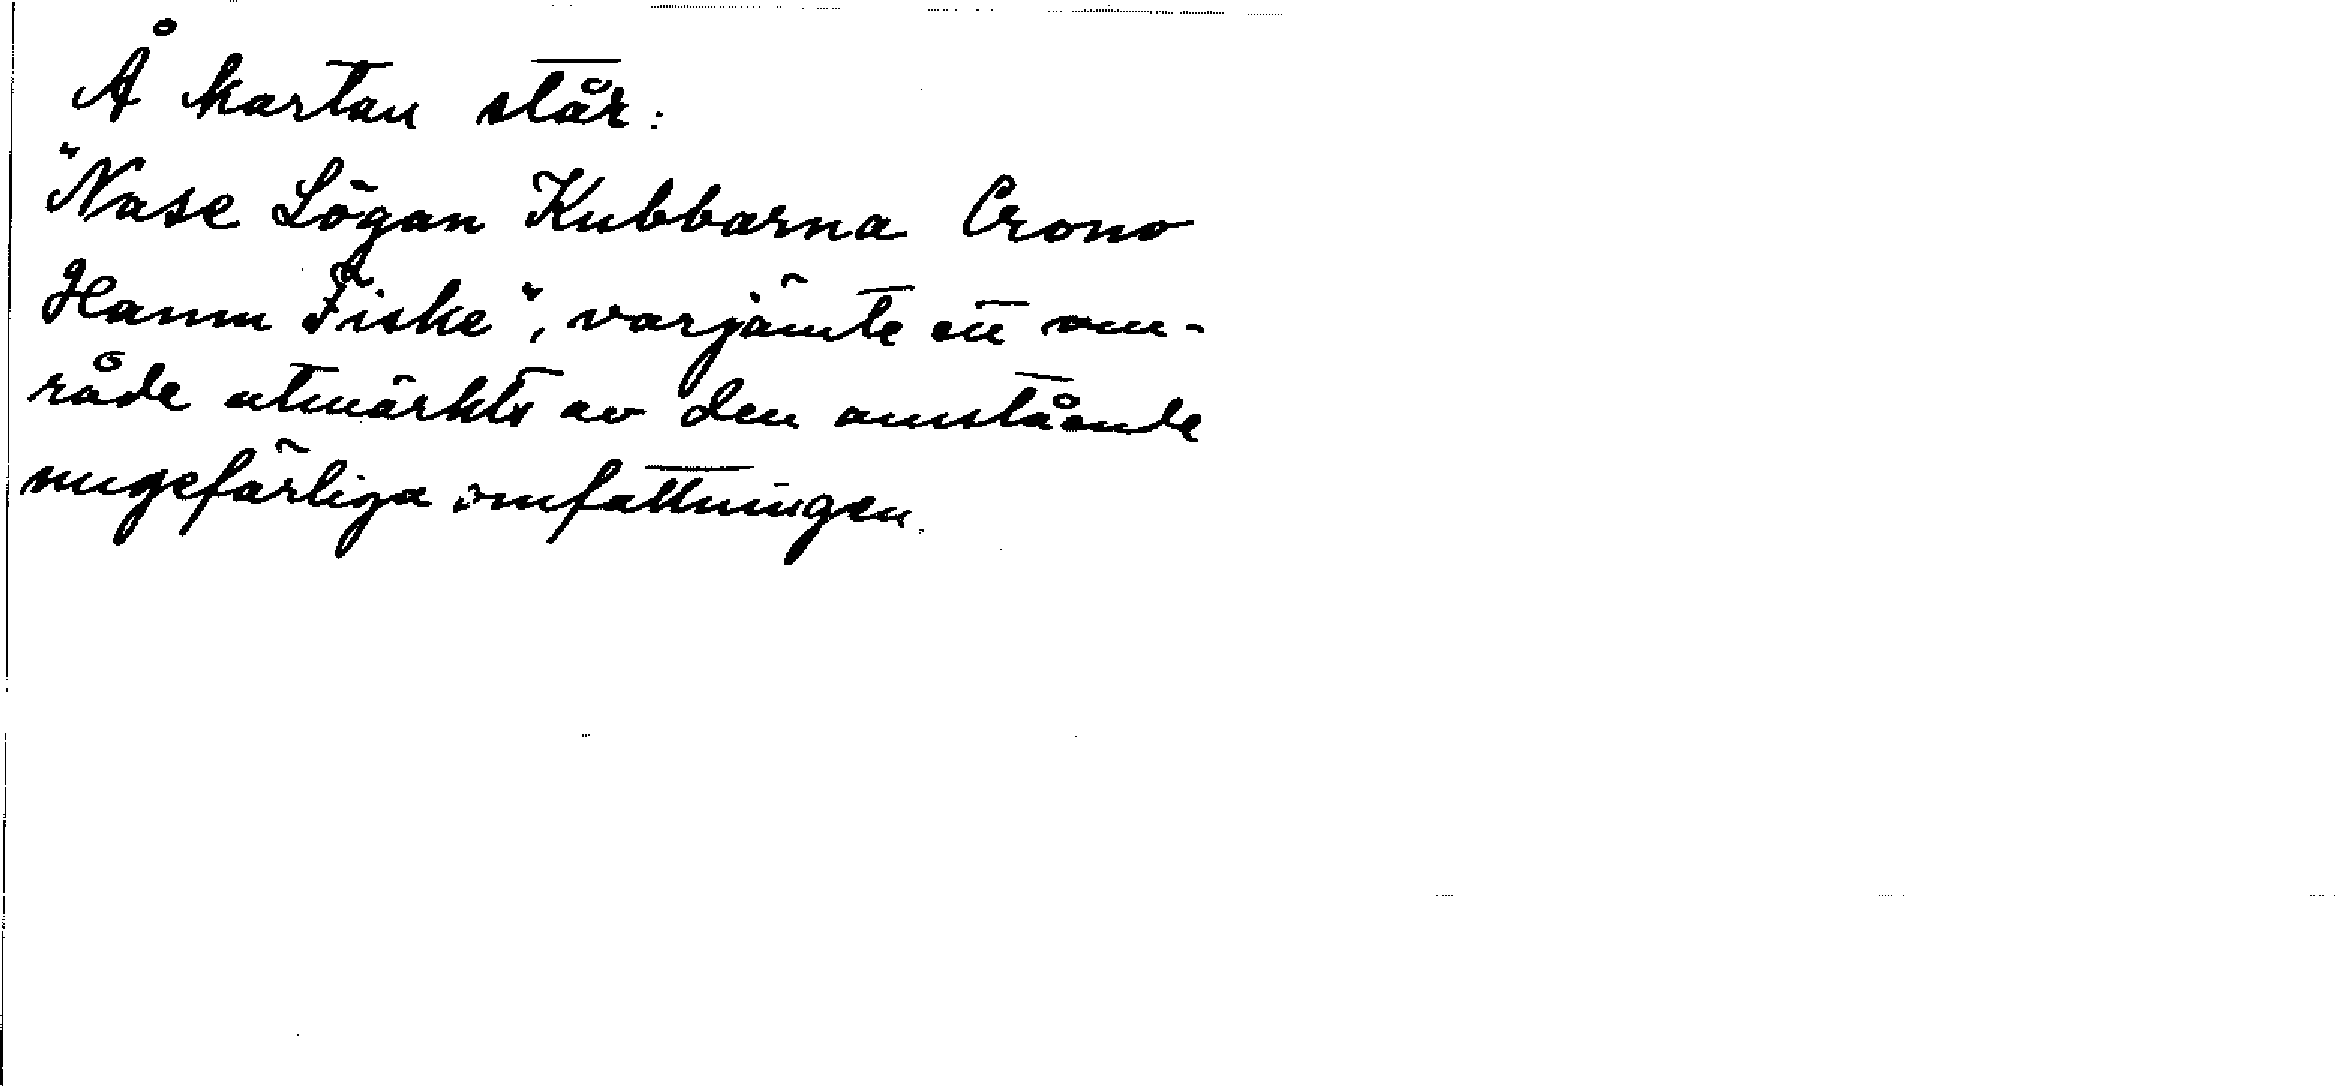 Å kartan står:
"Nase Lögan Kubbarna Crono
Hamn Fiske", varjämte ett om-
råde utmärkts av den omstående
ungefärliga omfattningen.